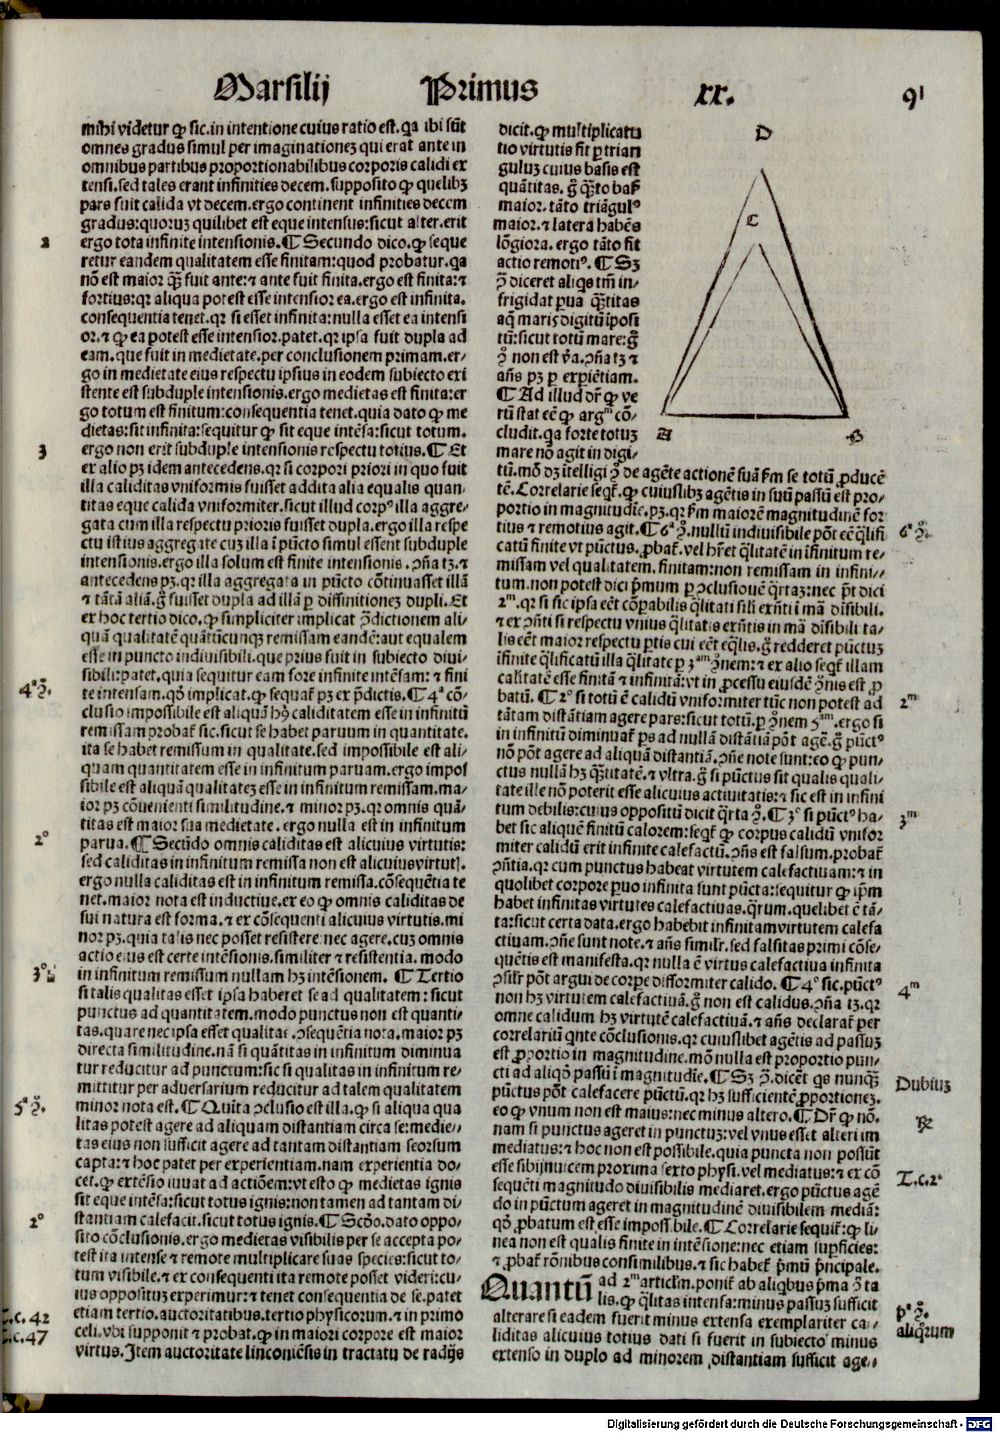 Marsilij Primus xx. 91
mihi videtur ꝙ sic. in intentione cuius ratio est. qa ibi sūt
omnes gradus simul per imaginationeꝫ qui erāt ante in
omnibus partibus proportionabilibus corporis calidi ex
tensi. sed tales erant infinities decem. supposito ꝙ quelibꝫ
pars fuit calida vt decem. ergo continent infinities decem
gradus: quoruꝫ quilibet est eque intensus: sicut alter. erit
2
ergo tota infinite intensionis. ¶ Secundo dico. ꝙ seque
retur eandem qualitatem esse finitam: quod probatur. qa
nō est maior qᷓꝫ fuit ante: ⁊ ante fuit finita. ergo est finita: ⁊
fortius: qꝛ aliqua potest esse intensior ea. ergo est infinita.
consequentia tenet. qꝛ si esset infinita: nulla esset ea intensi
or. ⁊ ꝙ ea potest esse intensior. patet. qꝛ ipsa fuit dupla ad
eam. que fuit in medietate. per conclusionem primam. er⸗
go in medietate eius respectu ipsius in eodem subiecto exi
stente est subduple intensionis. ergo medietas est finita: er
go totum est finitum: consequentia tenet. quia dato ꝙ me
dietas: sit infinita: sequitur ꝙ sit eque intēsa: sicut totum.
3
ergo non erit subduple intensionis respectu totius. ¶ Et
ex alio pꝫ idem antecedens. qꝛ si corpori priori in quo fuit
illa caliditas vniformis fuisset addita alia equalis quan⸗
titas eque calida vniformiter. sicut illud corpꝰ illa aggre⸗
gata cum illa respectu prioris fuisset dupla. ergo illa respe
ctu istius aggregate cuꝫ illa ī pūcto simul essent subduple
intensionis. ergo illa solum est finite intensionis. ꝯña tꝫ. ⁊
antecedens pꝫ. qꝛ illa aggregata in pūcto cōtinuasset illā
⁊ tātā aliā. gͦ fuisset dupla ad illā ꝑ diffinitioneꝫ dupli. Et
ex hoc tertio dico. ꝙ simpliciter implicat ꝯ̄dictionem ali⸗
quā qualitatē quātūcunqꝫ remissam eandē: aut equalem
esse in puncto indiuisibili. que prius fuit in subiecto diui⸗
sibili: patet. quia sequitur eam fore infinite intēsam: ⁊ fini
4ᵃ ꝯ̄.
te intensam. qō implicat. ꝙ sequaꝉ pꝫ ex p̄dictis. ¶ 4ᵃ cō⸗
clusio impossibile est aliquā hꝰ caliditatem esse in infinitū
remissam probaꝉ sic. sicut se habet paruum in quantitate.
ita se habet remissum in qualitate. sed impossibile est ali⸗
quam quantitatem esse in infinitum paruam. ergo impos
sibile est aliquā qualitateꝫ esse in infinitum remissam. ma⸗
ior pꝫ cōuenienti similitudine. ⁊ minor pꝫ. qꝛ omnis quā⸗
titas est maior sua medietate. ergo nulla est in infinitum
2°
parua. ¶ Secūdo omnis caliditas est alicuius virtutis:
sed caliditas in infinitum remissa non est alicuius virtut̄.
ergo nulla caliditas est in infinitum remissa. cōsequētia te
net. maior nota est inductiue. ex eo ꝙ omnis caliditas de
sui natura est forma. ⁊ ex cōsequenti alicuius virtutis. mi
nor pꝫ. quia talis nec posset resistere: nec agere. cuꝫ omnis
actio eius est certe intēsionis. similiter ⁊ resistentia. modo
3°
in infinitum remissum nullam hꝫ intēsionem. ¶ Tertio
si talis qualitas esset ipsa haberet se ad qualitatem: sicut
punctus ad quantitatem. modo punctus non est quanti⸗
tas. quare nec ipsa esset qualitas. ꝯsequētia nota. maior pꝫ
directa similitudine. nā si quātitas in infinitum diminua
tur reducitur ad punctum: sic si qualitas in infinitum re⸗
mittitur per aduersarium reducitur ad talem qualitatem
5ᵃ ꝯ̄.
minor nota est. ¶ Quīta ꝯclusio est illa. ꝙ si aliqua qua
litas potest agere ad aliquam distantiam circa se: medie⸗
tas eius non sufficit agere ad tantam distantiam seorsum
capta: ⁊ hoc patet per experientiam. nam experientia do⸗
cet. ꝙ extēsio iuuat ad actiōem: vt esto ꝙ medietas ignis
sit eque intēsa: sicut totus ignis: non tamen ad tantam di⸗
2°
stantiam calefacit. sicut totus ignis. ¶ Scďo. dato oppo⸗
sito cōclusionis. ergo medietas visibilis per se accepta po⸗
test ita intense ⁊ remote multiplicare suas species: sicut to⸗
tum visibile. ⁊ ex consequenti ita remote posset videri: cu⸗
ius oppositus experimur: ⁊ tenet consequentia de se. patet
T.c. 42
etiam tertio. auctoritatibus. tertio physicorum. ⁊ in primo
T.c. 47
celi. vbi supponit ⁊ probat. ꝙ in maiori corpore est maior
virtus. Item auctoritate linconiēsis in tractatu de radijs
dicit. ꝙ multiplicatu
tio virtutis fit ꝑ trian
guluꝫ cuius basis est
quātitas. gͦ qᷓto bas̄
maior. tāto triāgulꝰ
maior. ⁊ latera habēs
lōgiora. ergo tāto fit
actio remotiꝰ. ¶ Sꝫ
ꝯ̄ diceret aliqs tm̄ in⸗
frigidat ꝑua qᷓtitas
aq̄ maris digitū īposi
tū: sicut totū mare: gͦ
ꝯ̄ non est ꝟa. ꝯña tꝫ ⁊
añs pꝫ ꝑ exꝑiētiam.
¶ Ad illud dr̄ ꝙ ve
rū stat eē ꝙ argᵐ cō⸗
cludit. qa forte totuꝫ
mare nō agit in digi⸗
D
C
A
B
tū. mō dꝫ ītelligi ꝯ̄ de agēte actionē suā ẜm se totū ꝓducē
tē. Correlarie seqꝉ. ꝙ cuiuslibꝫ agētis in suū passū est pro⸗
portio in magnitudīe. pꝫ. qꝛ ẜm maiorē magnitudinē for
6ᵃ ꝯ̄.
tius ⁊ remotius agit. ¶ 6ᵃ ꝯ̄. nullū indiuisibile pōt eē qlifi
catū finite vt pūctus. ꝓbaꝉ. vel hr̄et qlitatē in īfinitum re⸗
missam vel qualitatem. finitam: non remissam in infini⸗
tum. non potest dici pͥmum ꝑ ꝯclusionē qͣrtaꝫ: nec pōt dici
2ᵐ. qꝛ si sic ipsa eēt cōꝑabilis qlitati sili exñti ī mā diuisibili.
⁊ ex ꝯñti si respectu vnius qlitatis exñtis in mā diuisibili ta⸗
lis eēt maior respectu ꝑtis cui eēt eqlis. gͦ redderet pūctuꝫ
īfinite qlificatū illa qlitate ꝑ 3ᵃᵐ ꝯ̄nem: ⁊ ex alio seqꝉ illam
calitatē esse finitā ⁊ infinitā: vt in ꝓcessu eiusdē ꝯ̄nis est ꝓ
2ᵐ
batū. ¶ 2° si totū ē calidū vniformiter tūc non potest ad
tātam distātiam agere pars: sicut totū. ꝑ ꝯ̄nem 5ᵃᵐ. ergo si
in infinitū diminuaꝉ ꝑs ad nullā distātiā pōt agē. gͦ pūctꝰ
nō pōt agere ad aliquā distantiā. ꝯñe note sunt: eo ꝙ pun⸗
ctus nullā hꝫ qᷓtitatē. ⁊ vltra. gͦ si pūctus sit qualis quali⸗
tate ille nō poterit esse alicuius actiuitatis: ⁊ sic est in infini
3ᵐ
tum debilis: cuius oppositū dicit qͣrta ꝯ̄. ¶ 3° si pūctꝰ ha⸗
bet sic aliquē finitū calorem: seqꝉ ꝙ corpus calidū vnifor
miter calidū erit infinite calefactiū. ꝯñs est falsum. probaꝉ
ꝯñtia. qꝛ cum punctus habeat virtutem calefactiuam: ⁊ in
quolibet corpore ꝑuo infinita sunt pūcta: sequitur ꝙ ip̄m
habet infinitas virtutes calefactiuas. qͣrum. quelibet ē tā⸗
ta: sicut certa data. ergo habebit infinitam virtutem calefa
ctiuam. ꝯñe sunt note. ⁊ añs similꝛ. sed falsitas primi cōse⸗
quētis est manifesta. qꝛ nulla ē virtus calefactiua infinita
4ᵐ
ꝯsilꝛ pōt argui de corꝑe difformiter calido. ¶ 4° sic. pūctꝰ
non hꝫ virtutem calefactiuā. gͦ non est calidus. ꝯña tꝫ. qꝛ
omne calidum hꝫ virtutē calefactiuā. ⁊ añs declaraꝉ per
correlariū qnte cōclusionis. qꝛ cuiuslibet agētis ad passuꝫ
est ꝓportio in magnitudine. mō nulla est proportio pun⸗
Dubiuꝫ
cti ad aliqō passū ī magnitudīe. ¶ Sꝫ ꝯ̄. dicēt qs nunqᷓꝫ
pūctus pōt calefacere pūctū. qꝛ hꝫ sufficientē ꝓportioneꝫ.
℞
eo ꝙ vnum non est maius: nec minus altero. ¶ Dr̄ ꝙ nō.
nam si punctus ageret in punctuꝫ: vel vnus esset alteri im
mediatus: ⁊ hoc non est possibile. quia puncta non possūt
T.c.2ᵉ
esse sibijnuicem proxima sexto physi. vel mediatus: ⁊ ex cō
sequēti magnitudo diuisibilis mediaret. ergo pūctus agē
do in pūctum ageret in magnitudinē diuisibilem mediā:
qō ꝓbatum est esse impossibile. ¶ Correlarie sequiꝉ: ꝙ li⸗
nea non est qualis finite in intēsione: nec etiam suꝑficies:
⁊ ꝓbaꝉ rōnibus consimilibus. ⁊ sic habeꝉ pͥmū pͥncipale.
Quantū ad 2ᵐ articłm. poniꝉ ab aliqbus pͥma ꝯ̄ ta
pᵃ ꝯ̄.
aliqͦrum
lis. ꝙ qlitas intensa: minus passuꝫ sufficit
alterare si eadem fuerit minus extensa exemplariter ca⸗
liditas alicuius totius dati si fuerit in subiecto minus
extenso in duplo ad minorem distantiam sufficit age⸗
Digitalisierung gefördert durch die Deutsche Forschungsgemeinschaft - DFG